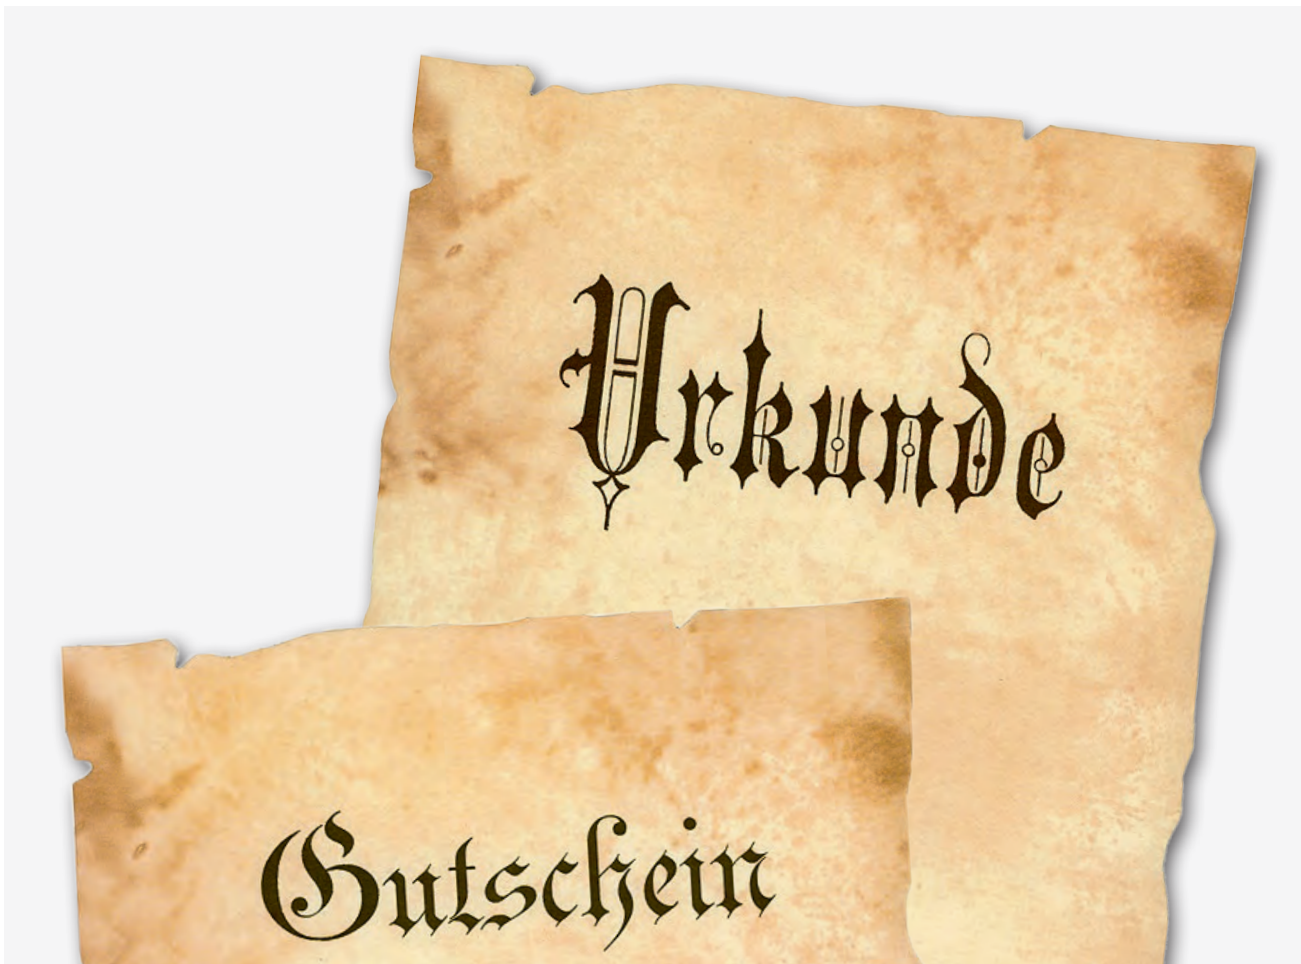 Urkunde
Gutschein